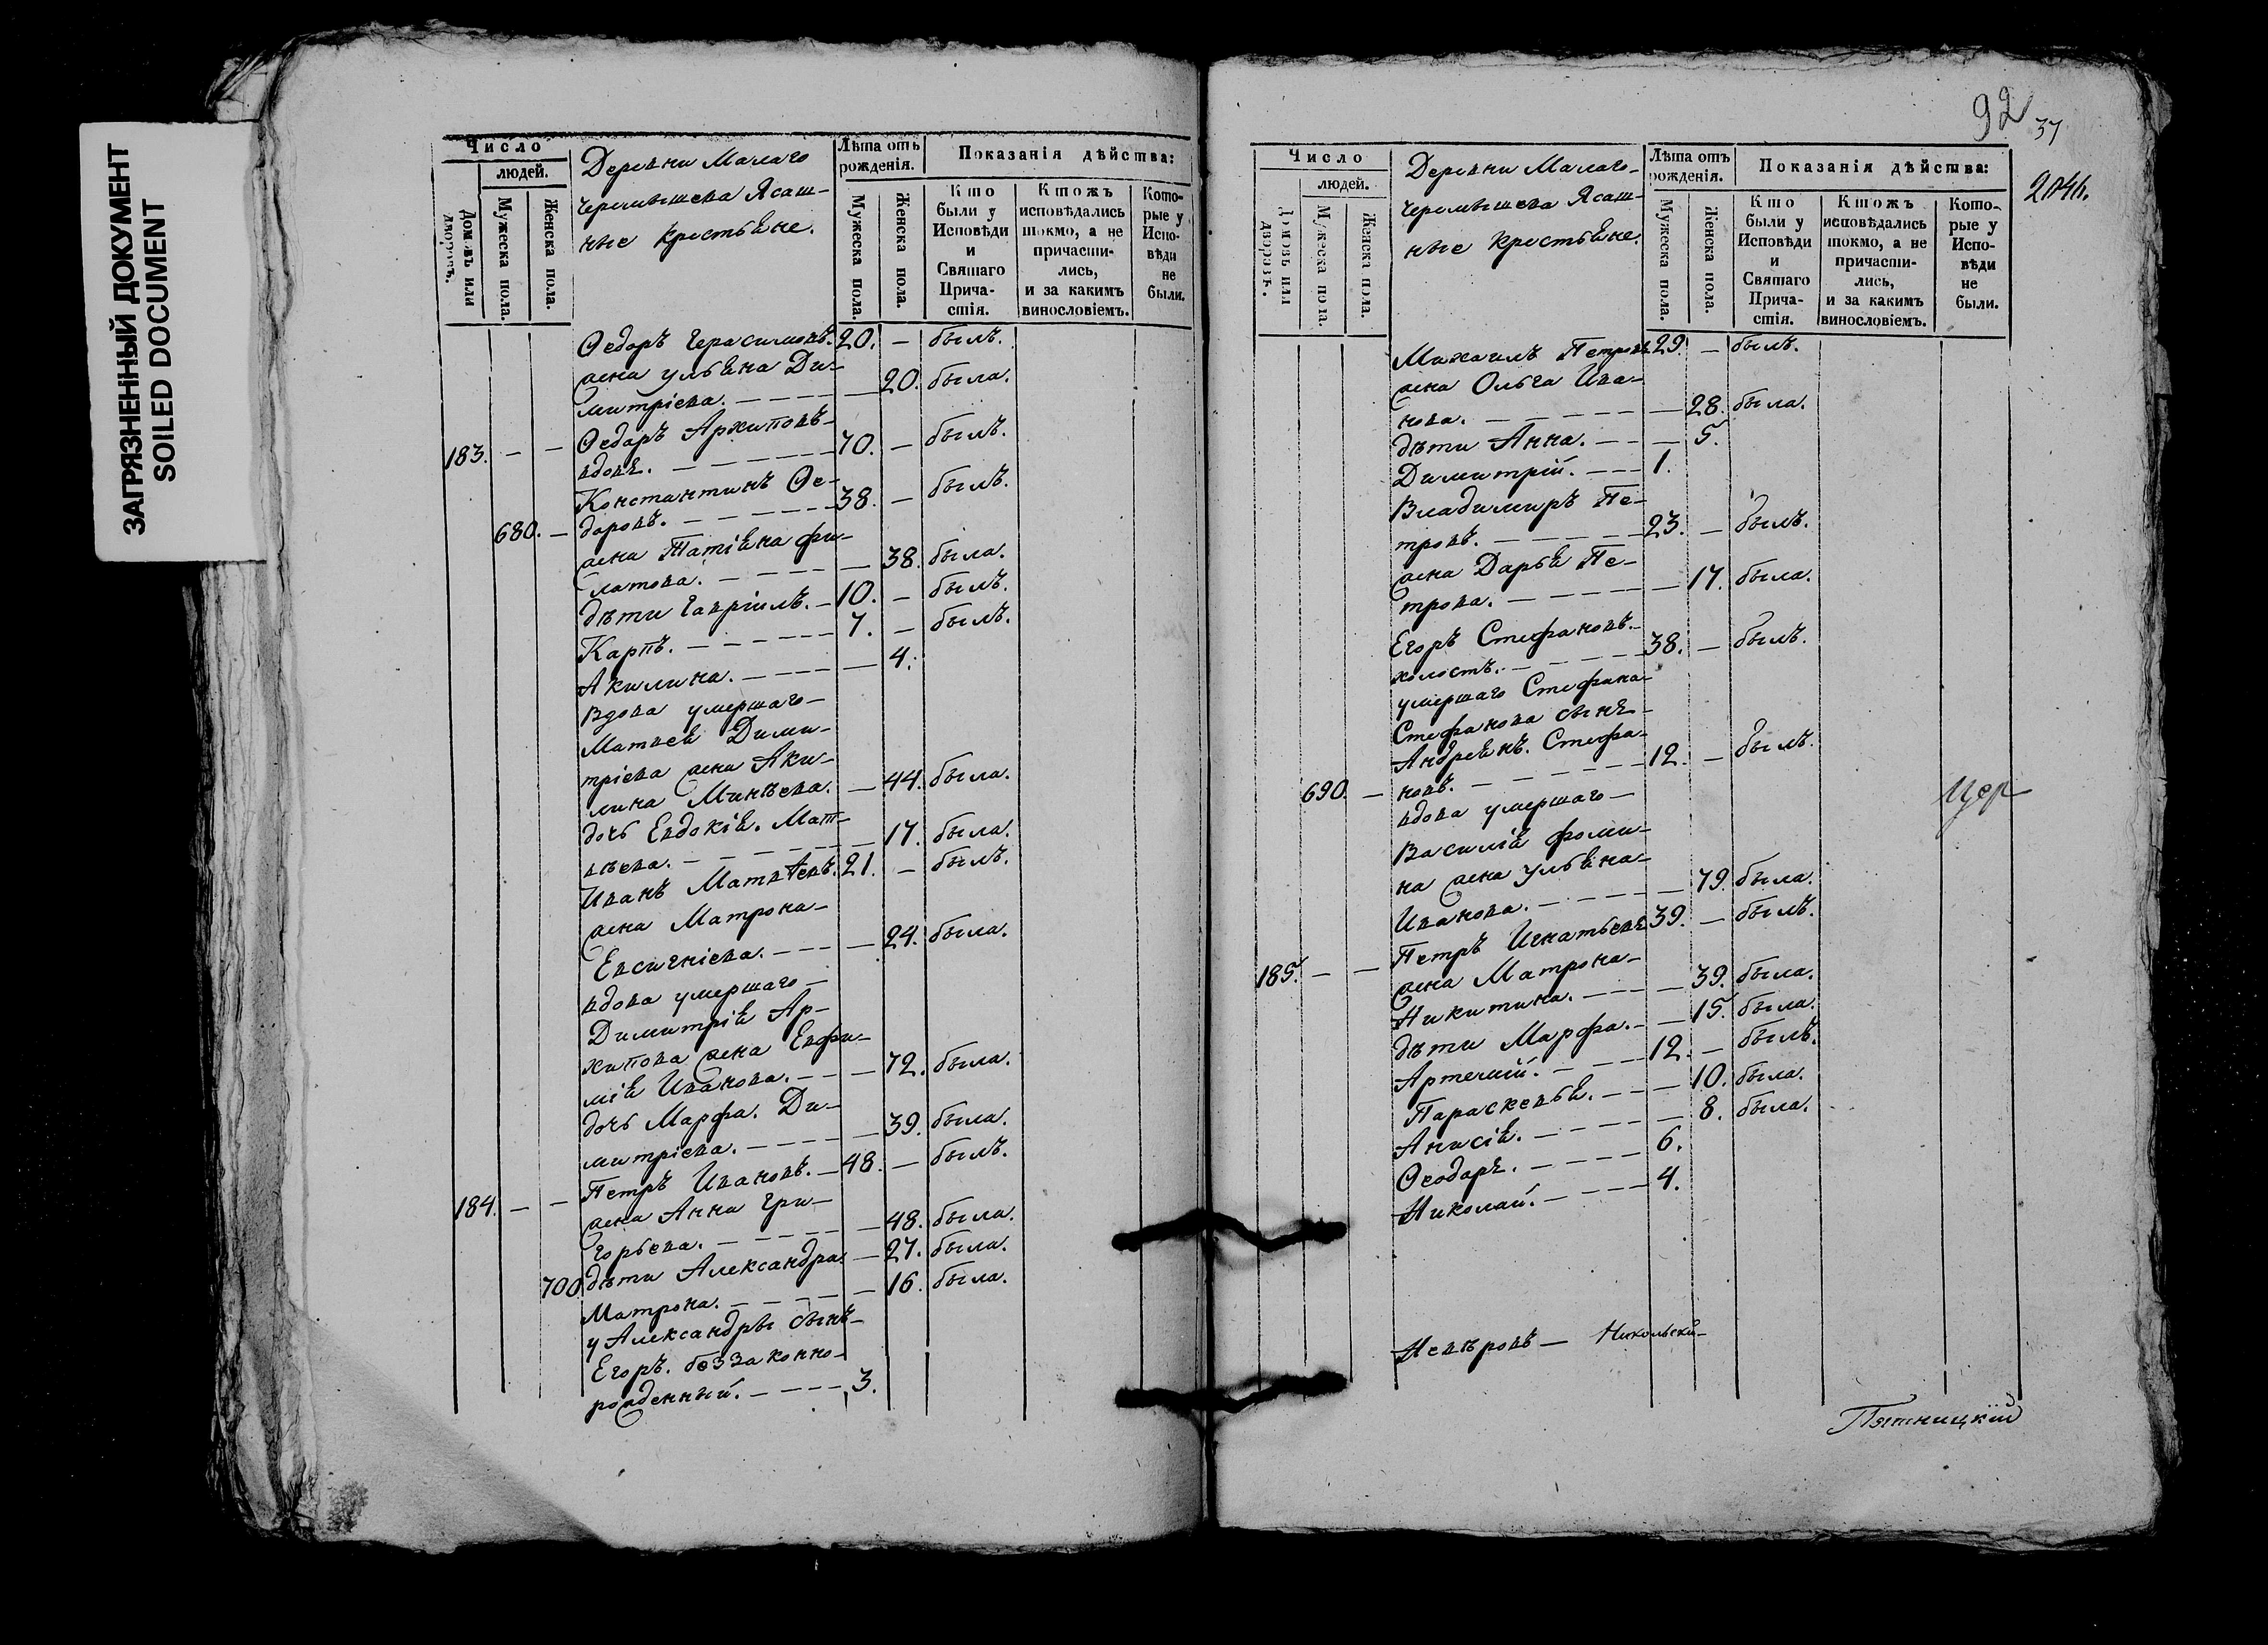 ЗАГРЯЗНЕННЫЙ ДОКУМЕНТ
SOILED DOCUMENT
Число
людей.
Домовъ или дворовъ.
Мужеска пола.
Женска пола.
Деревни Малаго
Черемышева Ясаш-
ные крестьяне.
Лѣта отъ рожденія.
Мужеска пола.
Женска пола.
Показанія дѣйства:
Кто были у Исповѣди и Святаго Прича-стія.
Ктожъ исповѣдались токмо, а не причасти-лись, и за какимъ винословіемъ.
Кото-рые у Испо-вѣди не были.
Ѳедоръ Герасимовъ. 20. — былъ.
жена Ульяна Ди-
митріева. — 20. была.
183. — — Ѳедоръ Архиповъ-
вдовъ. — 70. — былъ.
Константинъ Ѳе-
680. — доровъ. — 38. — былъ.
жена Татіяна Фи-
латова. — 38. была.
дѣти Гавріилъ. — 10. — былъ.
Карпъ. — 7. — былъ.
Акилина. — 4.
Вдова умершаго-
Матвея Дими-
тріева жена Аки-
лина Минѣева. — 44. была.
дочь Евдокія. Мат-
вѣева. — 17. была.
Иванъ Матвѣевъ. 21. — былъ.
жена Матрона-
Евсигніева. — 24. была.
вдова умершаго-
Димитрія Ар-
хипова жена Евфи-
мія Иванова. — 72. была.
дочь Марфа. Ди-
митріева. — 39. была.
184. — — Петръ Ивановъ. — 48. — былъ.
жена Анна Гри-
горьева. — 48. была.
700 дѣти Александра. — 27. была.
Матрона. — 16. была.
у Александры сынъ-
Егоръ. беззаконно-
рожденный. — 3.
92
37
204б.
Число
людей.
Домовъ или дворовъ.
Мужеска пола.
Женска пола.
Деревни Малаго-
Черемышева Ясаш-
ные крестьяне.
Лѣта отъ рожденія.
Мужеска пола.
Женска пола.
Показанія дѣйства:
Кто были у Исповѣди и Святаго Прича-стія.
Ктожъ исповѣдались токмо, а не причасти-лись, и за какимъ винословіемъ.
Кото-рые у Испо-вѣди не были.
Михаилъ Петровъ 29. — былъ.
жена Ольга Ива-
нова. — 28. была.
дѣти Анна. — 5.
Димитрій. — 1.
Владимиръ Пе-
тровъ. — 23. — былъ.
жена Дарья Пе-
трова. — 17. была.
Егоръ Стефановъ.-
холостъ. — 38. — былъ.
умершаго Стефана-
Стефанова сынъ-
Андреянъ. Стефа-
690. — новъ. — 12. — былъ.
вдова умершаго-
Василія Фоми-
на жена Ульяна-
Иванова. — 79. была.
185. — — Петръ Игнатьевъ 39. — былъ.
жена Матрона-
Никитина. — 39. была.
дѣти Марфа. — 15. была.
Артемій. — 12. — былъ.
Параскевья. — 10. была.
Анисія. — 8. была.
Ѳеодоръ. — 6.
Николай. — 4.
Цер
Невѣровъ — Никольскій-
Пятницкій